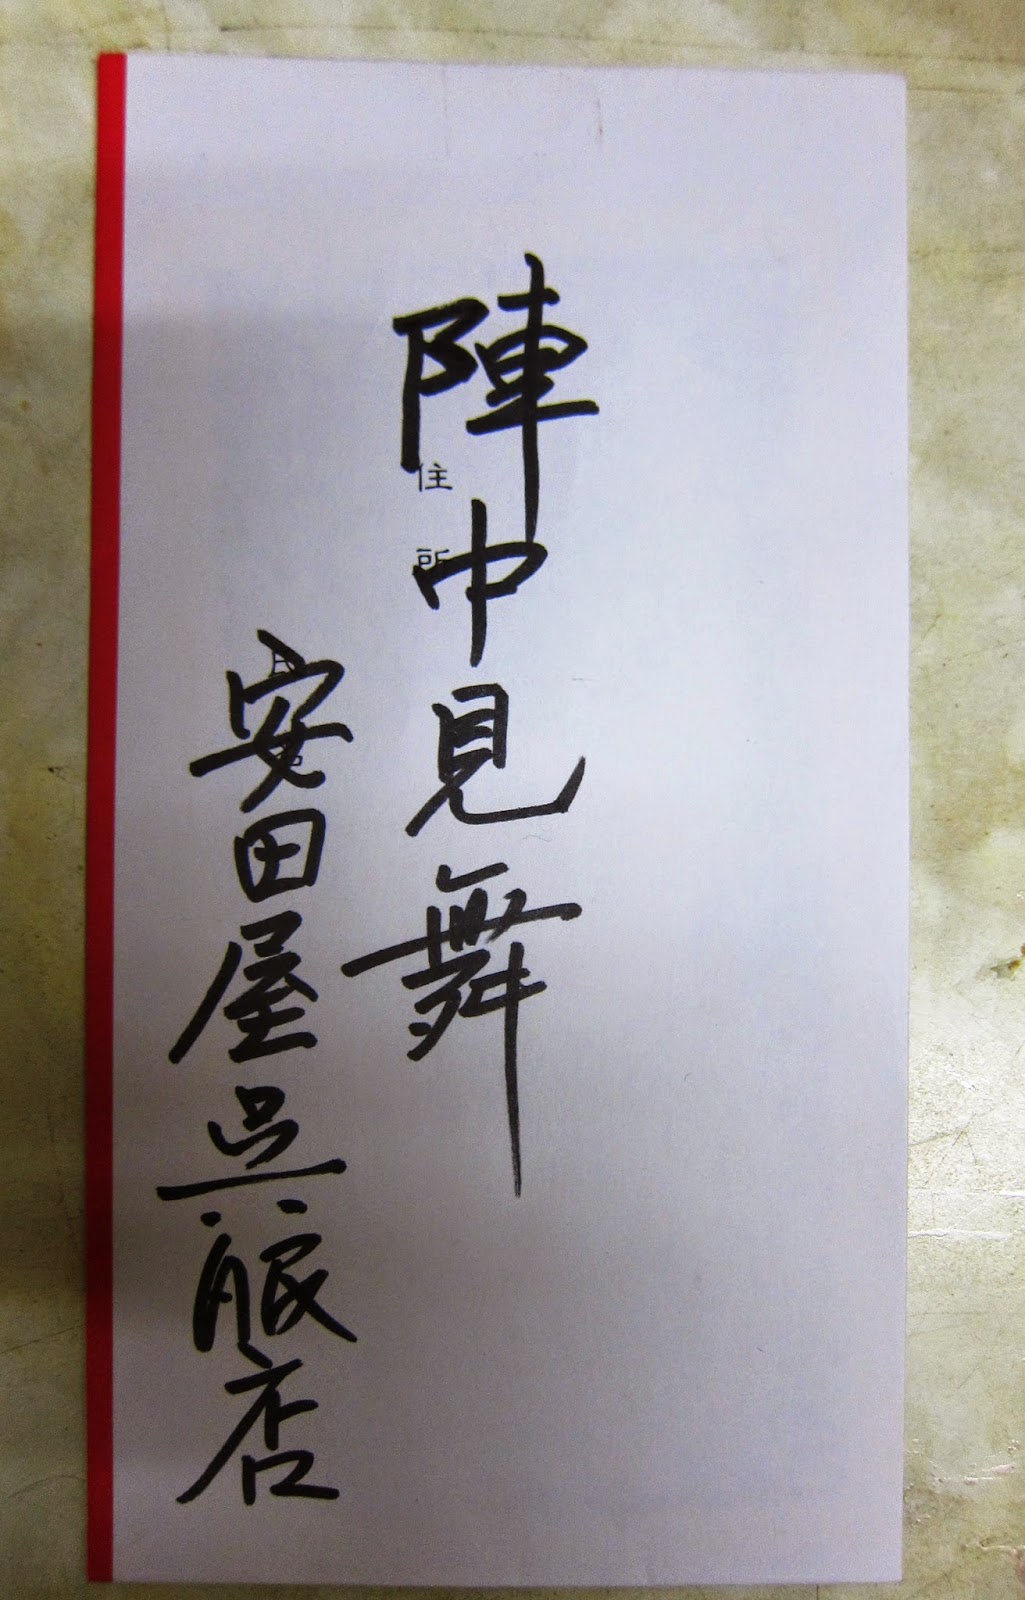 陣中見舞
住所
安田屋呉服店